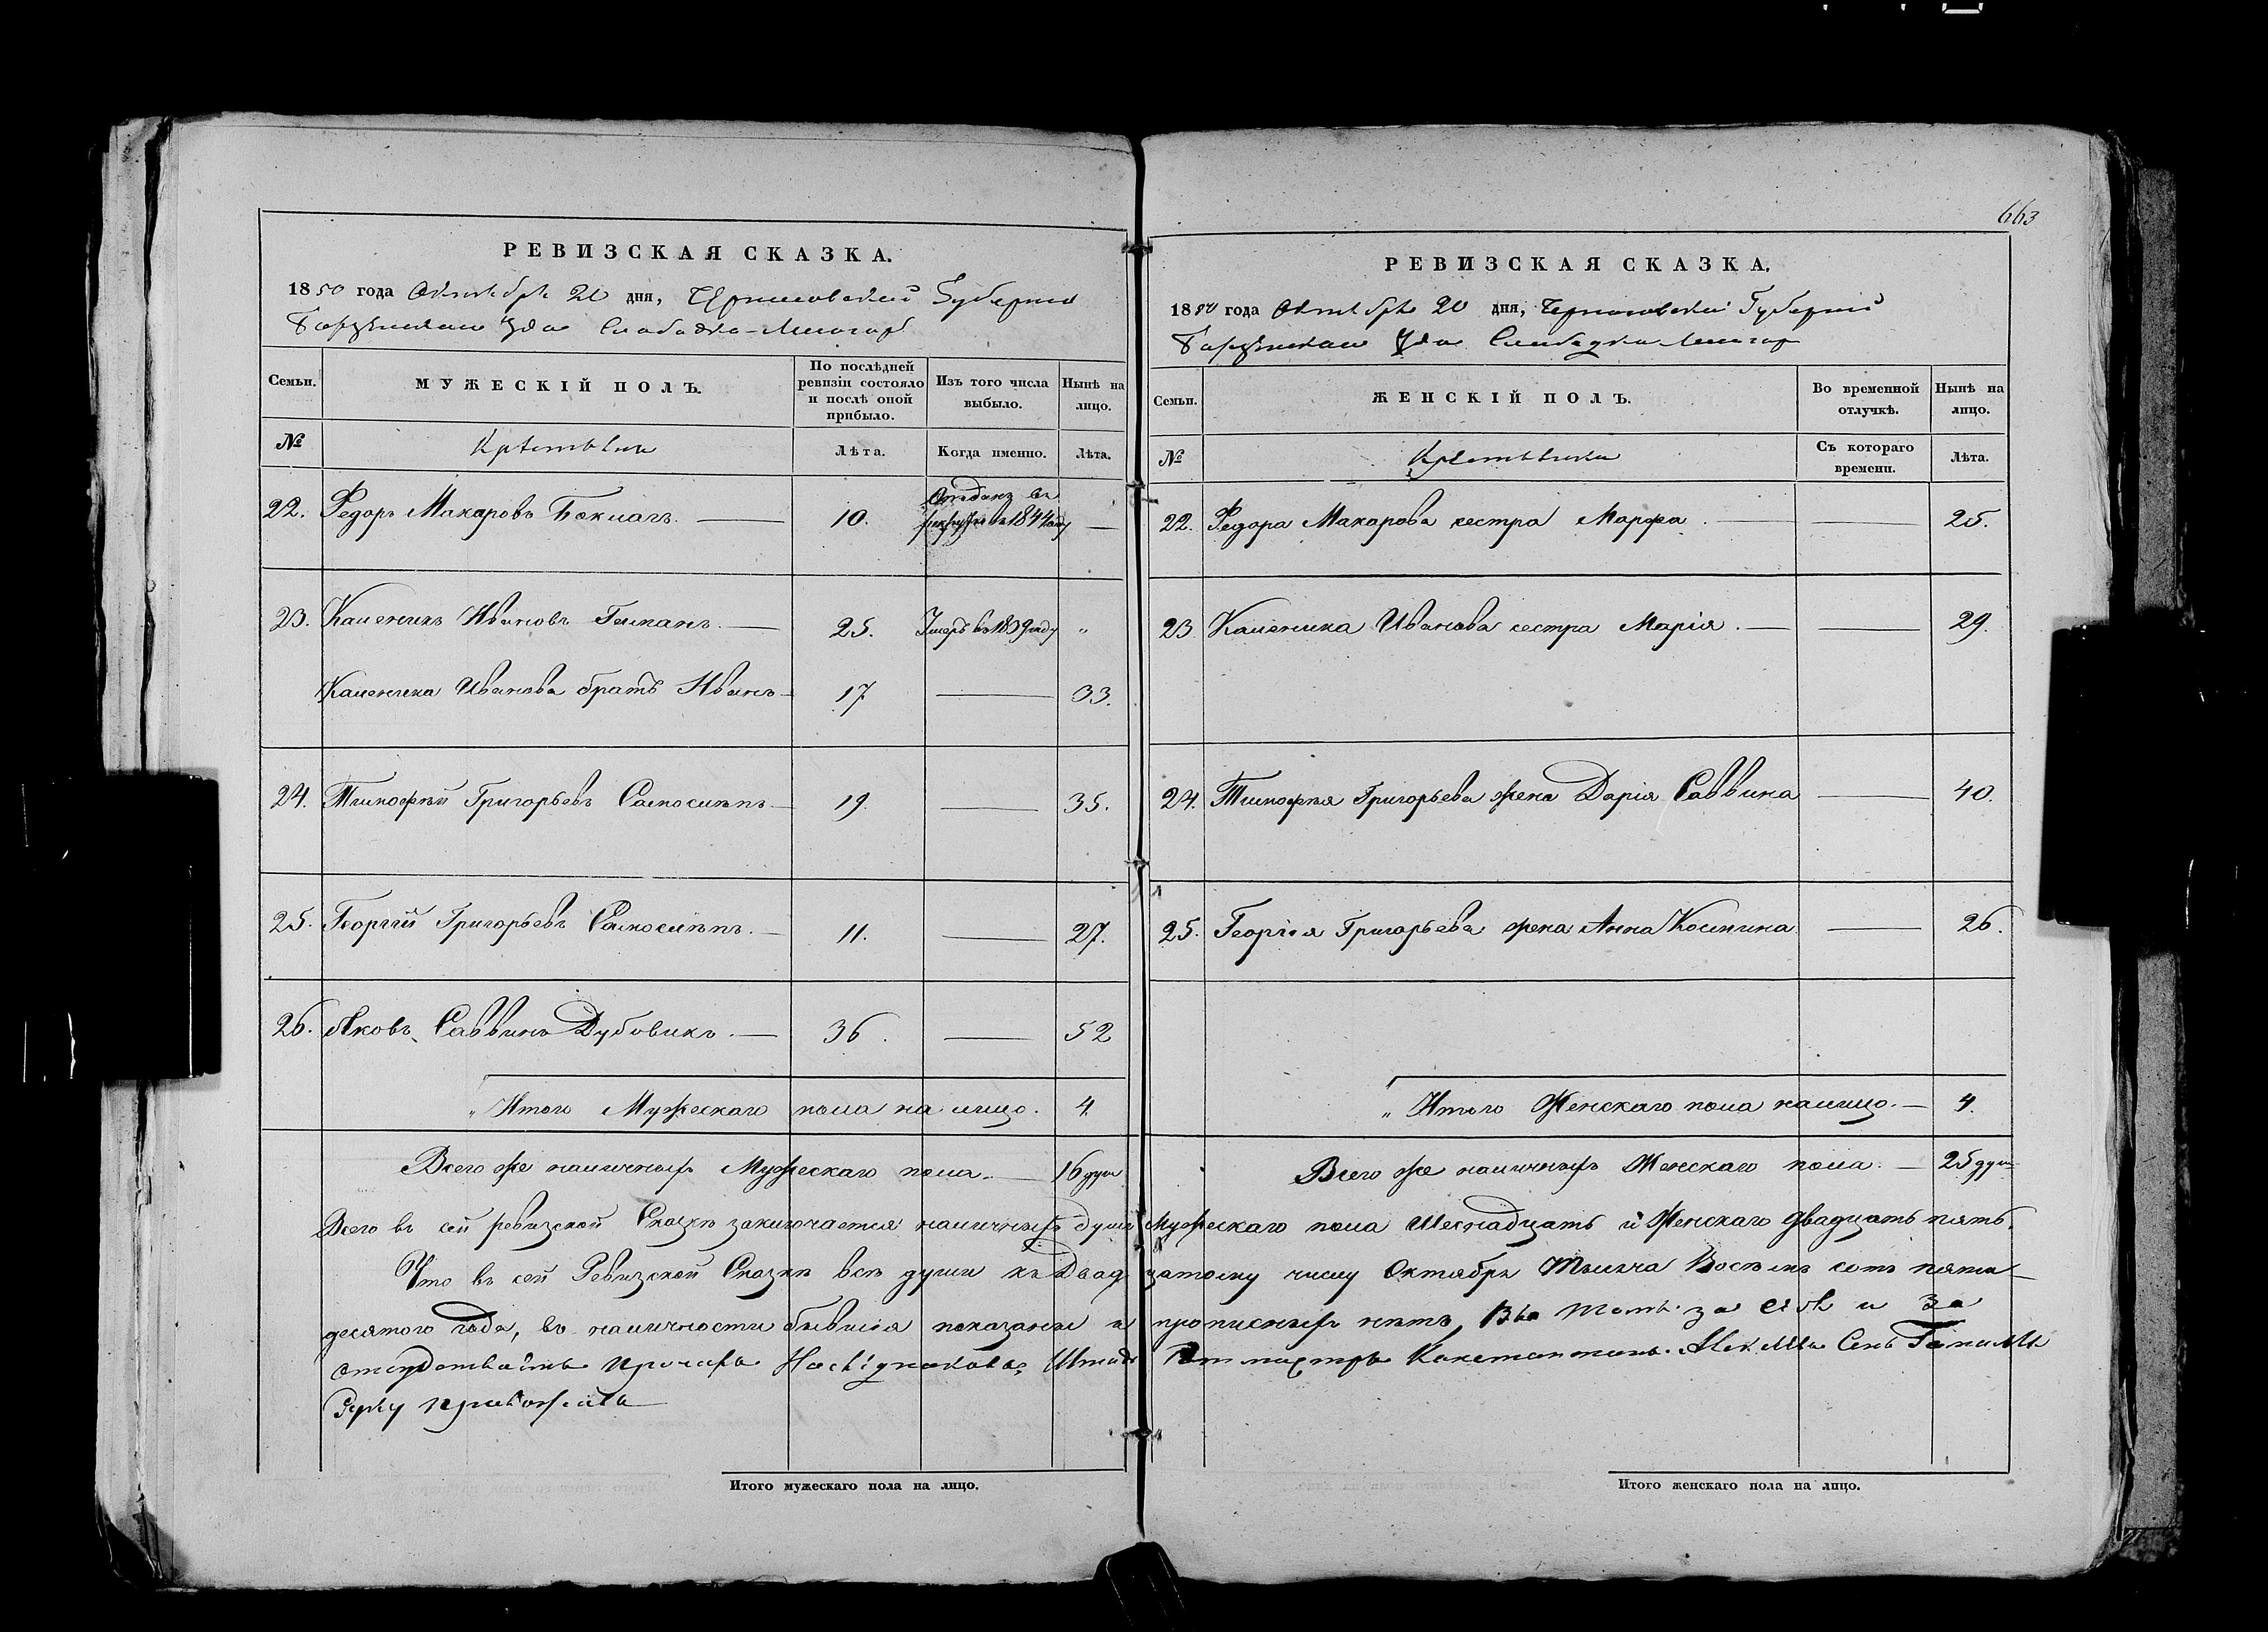 663
РЕВИЗСКАЯ СКАЗКА.
1850 года Октября 20 дня, Черниговской Губернии
Борзенскаго Уѣзда Слободка
Семьи. МУЖЕСКІЙ ПОЛЪ. По послѣдней ревизіи состояло и послѣ оной прибыло. Изъ того числа выбыло. Нынѣ на лицо.
№ Крестьяне Лѣта. Когда именно. Лѣта.
22. Федоръ Макаровъ — 10. Отданъ въ рекруты въ 1844 году —
23. Калѣникъ Ивановъ — 25. Умеръ въ 1839 году „
Калѣника Иванова братъ Иванъ — 17 — 33.
24. Тимофѣй Григорьевъ — 19. — 35.
25. Георгій Григорьевъ — 11. — 27.
26. Яковъ Саввинъ Дубовикъ. — 36. — 52
„ Итого Мужескаго пола на лицо. 4.
Всего же наличныхъ Мужескаго пола. — 16 душъ
РЕВИЗСКАЯ СКАЗКА.
1850 года Октября 20 дня, Черниговской Губерніи
Борзенскаго Уѣзда Слободка
Семьи. ЖЕНСКІЙ ПОЛЪ. Во временной отлучкѣ. Нынѣ на лицо.
№ Крестьянки Съ котораго времени. Лѣта.
22. Федора Макарова сестра Марфа. — — 25.
23. Калѣника Иванова сестра Марія. — — 29.
24. Тимофѣя Григорьева жена Дарія Саввина — 40.
25. Георгія Григорьева жена Анна Космина — 26.
„ Итого Женскаго пола налицо. — 4.
Всего же наличныхъ Женскаго пола. — 25 душъ
Всего въ сей ревизской Сказкѣ заключается наличныхъ душъ Мужескаго пола Шеснадцать и Женскаго двадцать пять.
Что въ сей Ревизской Сказкѣ всѣ души къ Двадцатому числу Октября Тысяча Восемь сотъ пяти-
десятого года, въ наличности бывшія показаны и прописныхъ нѣтъ, Въ томъ за себя и За
отсудствіемъ прочихъ Наслѣдниковъ, Штабъ Ротмистръ Константинъ Сынъ
Руку приложилъ
Итого мужескаго пола на лицо.
Итого женскаго пола на лицо.